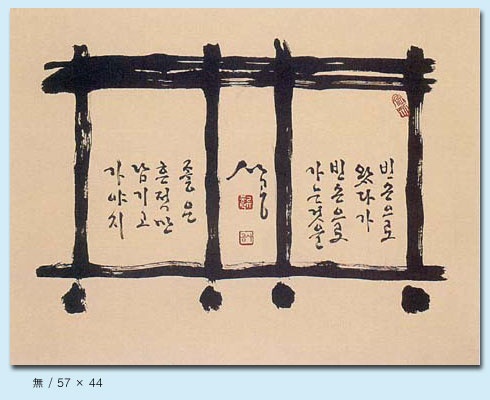 無
빈손으로
왔다가
빈손으로
가는것을
좋은
흔적만
남기고
가야지
無 / 57 × 44